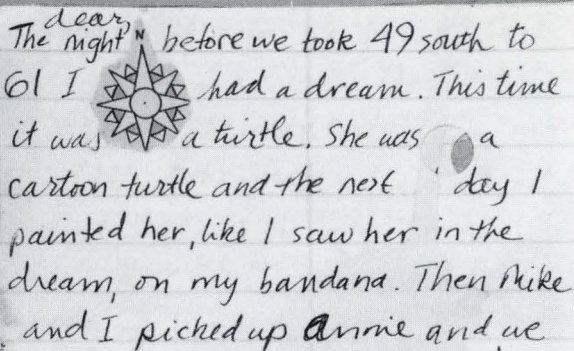 dear,
The night N before we took 49 south to
61 I had a dream. This time
it was a turtle. She was a
cartoon turtle and the next day I
painted her, like I saw her in the
dream, on my bandana. Then Mike
and I picked up Annie and we